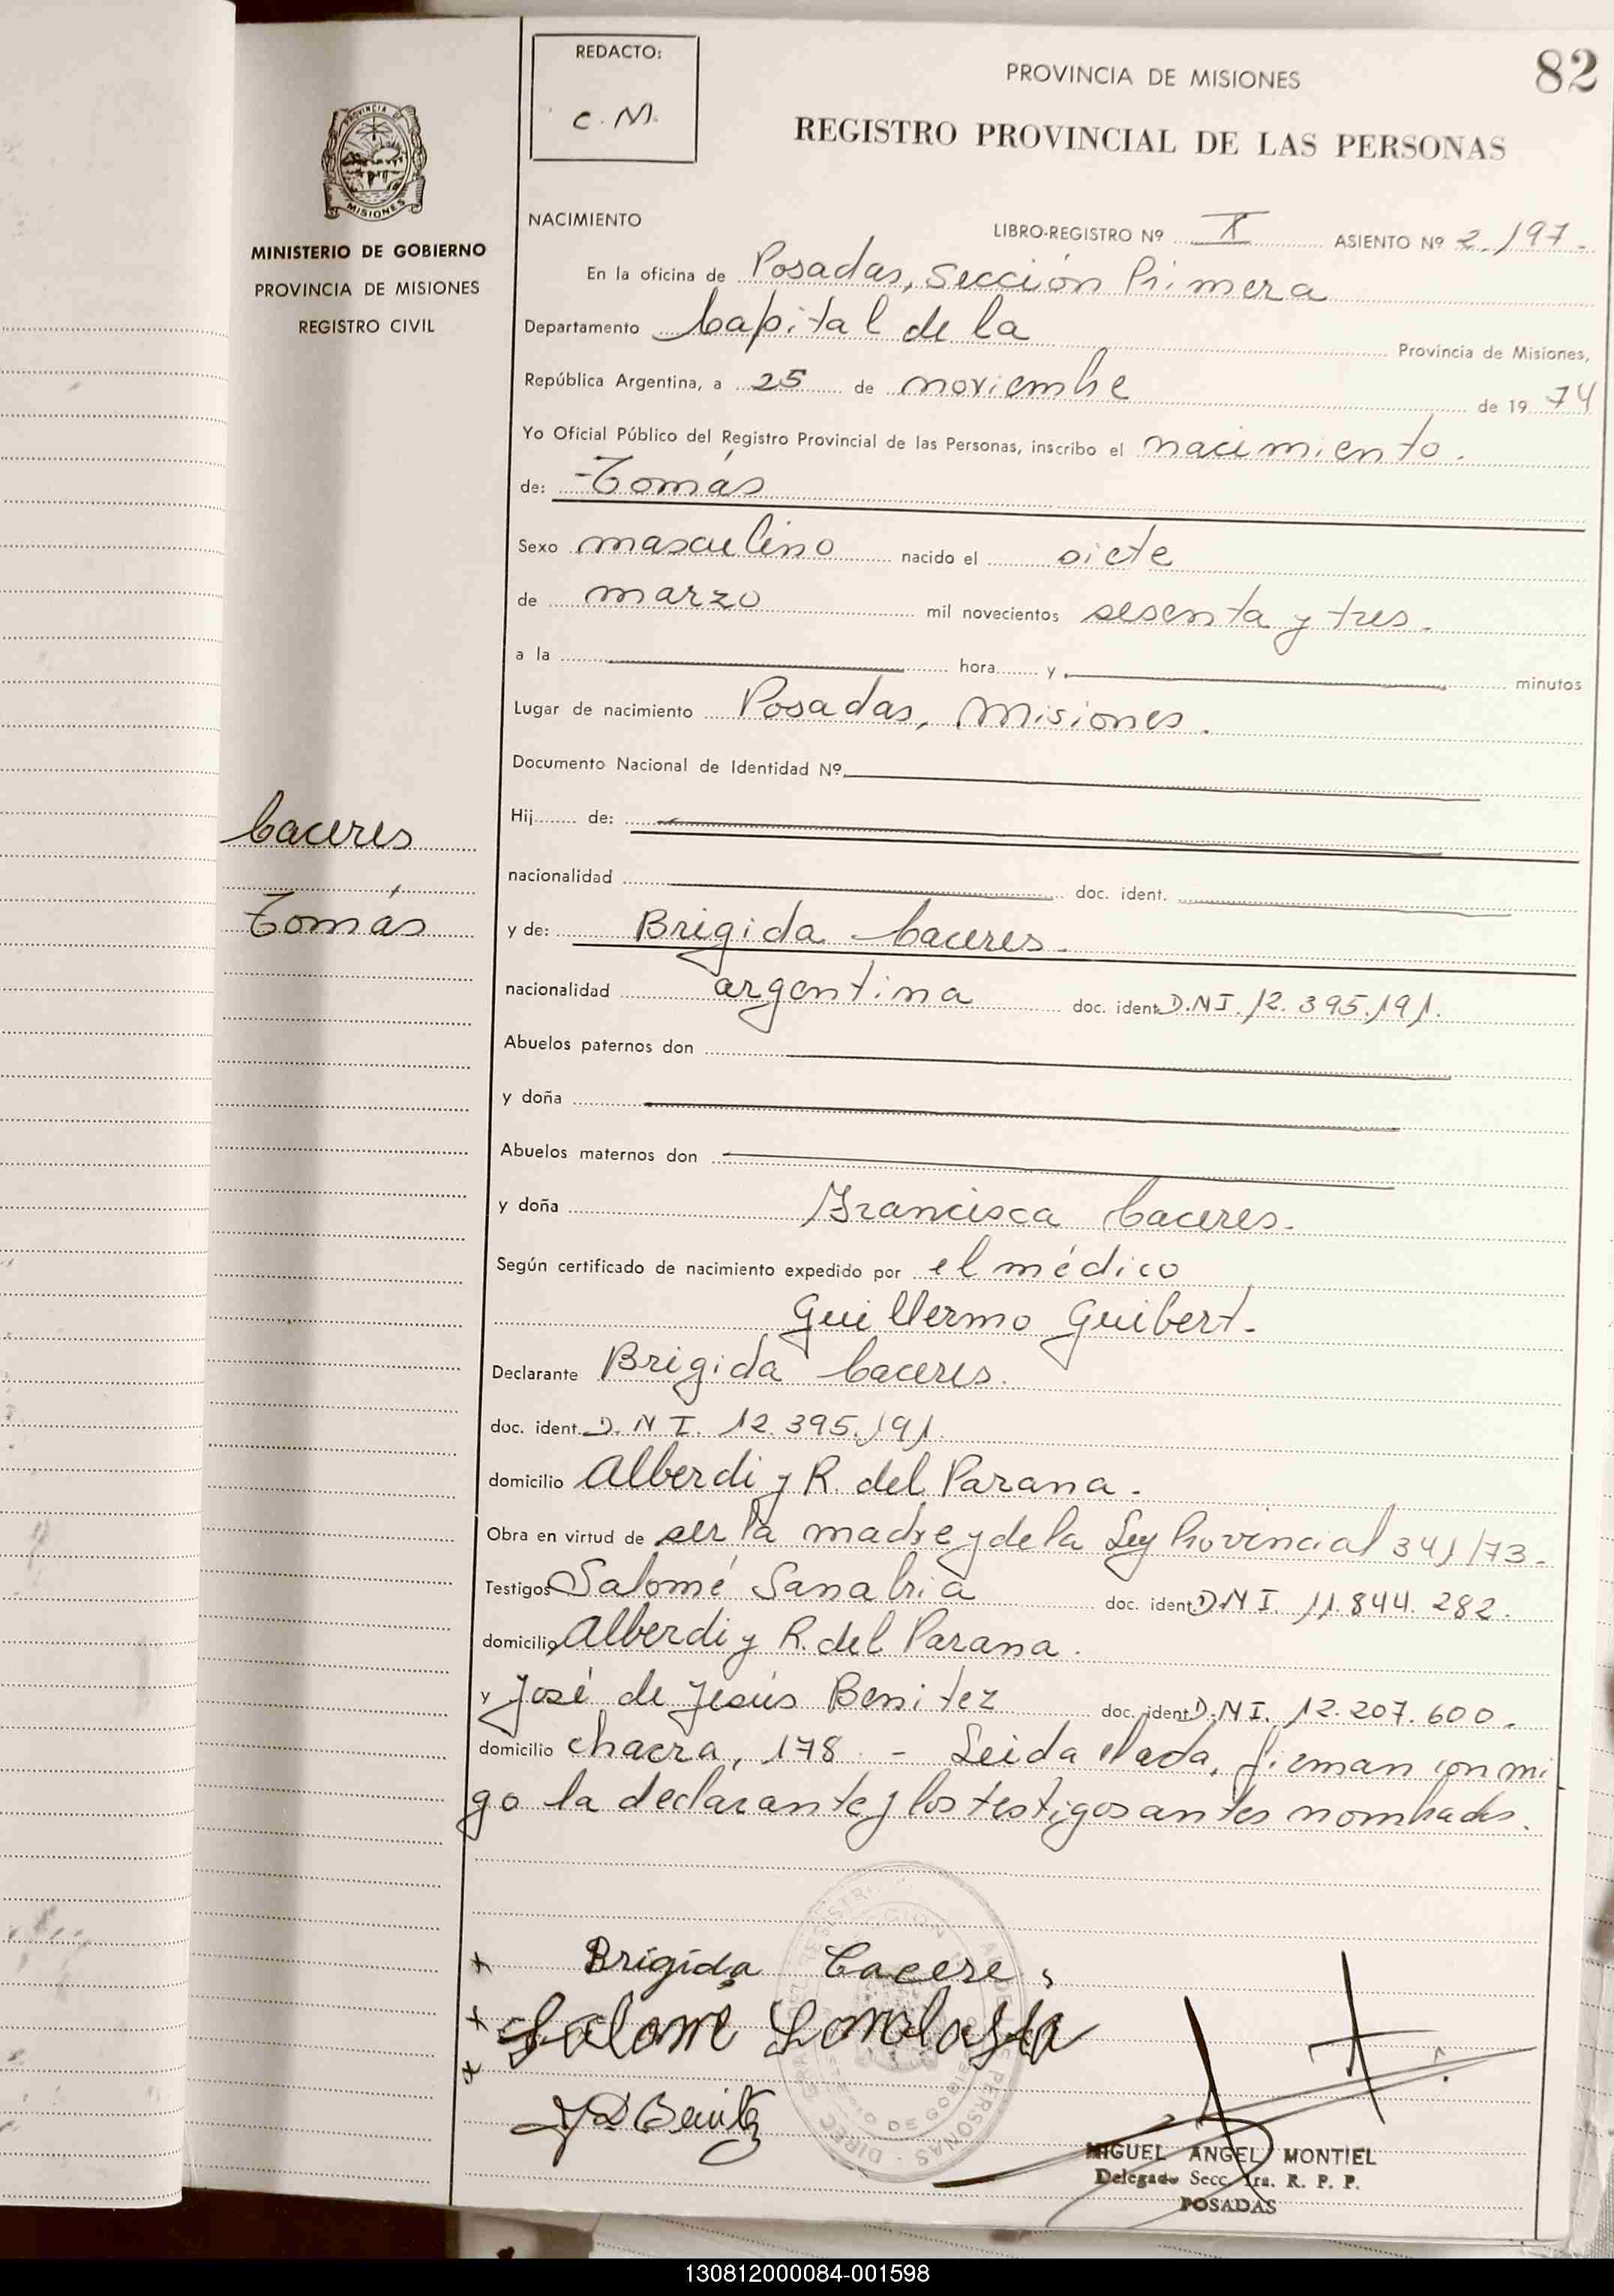 REDACTO:
C. M.
PROVINCIA DE MISIONES
82
REGISTRO PROVINCIAL DE LAS PERSONAS
PROVINCIA DE
MISIONES
MINISTERIO DE GOBIERNO
PROVINCIA DE MISIONES
REGISTRO CIVIL
NACIMIENTO
LIBRO-REGISTRO Nº X ASIENTO Nº 2.197.
En la oficina de Posadas, Sección Primera
Departamento Capital de la Provincia de Misiones,
República Argentina, a 25 de noviembre de 19 74
Yo Oficial Público del Registro Provincial de las Personas, inscribo el nacimiento.
de: Tomás
Sexo masculino nacido el siete
de marzo mil novecientos sesenta y tres.
a la hora y minutos
Lugar de nacimiento Posadas, Misiones.
Documento Nacional de Identidad Nº
Hij de:
Caceres
nacionalidad doc. ident.
Tomás
y de: Brigida Caceres.
nacionalidad argentina doc. ident. D.N.I. 12.395.191.
Abuelos paternos don
y doña
Abuelos maternos don
y doña Francisca Caceres.
Según certificado de nacimiento expedido por el médico
Guillermo Guibert.
Declarante Brigida Caceres.
doc. ident. D.N.I. 12.395.191.
domicilio Alberdi y R. del Parana.
Obra en virtud de ser la madre y de la Ley Provincial 341/73.
Testigos Salomé Sanabria doc. ident. D.N.I. 11.844.282.
domicilio Alberdi y R. del Parana.
y José de Jesús Benitez doc. ident. D.N.I. 12.207.600.
domicilio chacra, 178. - Leida el acta, firman conmi
go la declarante y los testigos antes nombrados.
Brigida Caceres
Salomé
J D Benitez
MIGUEL ANGEL MONTIEL
Delegado Secc. 1ra. R. P. P.
POSADAS
130812000084-001598